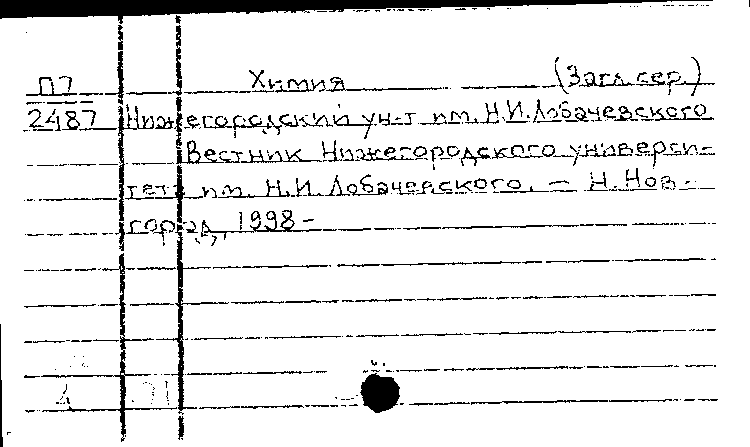 П7 Химия (Загл. сер.)
2487 Нижегородский ун-т им. Н.И. Лобачевского
Вестник Нижегородского универси-
тета им. Н.И. Лобачевского. — Н. Нов-
город, 1998-